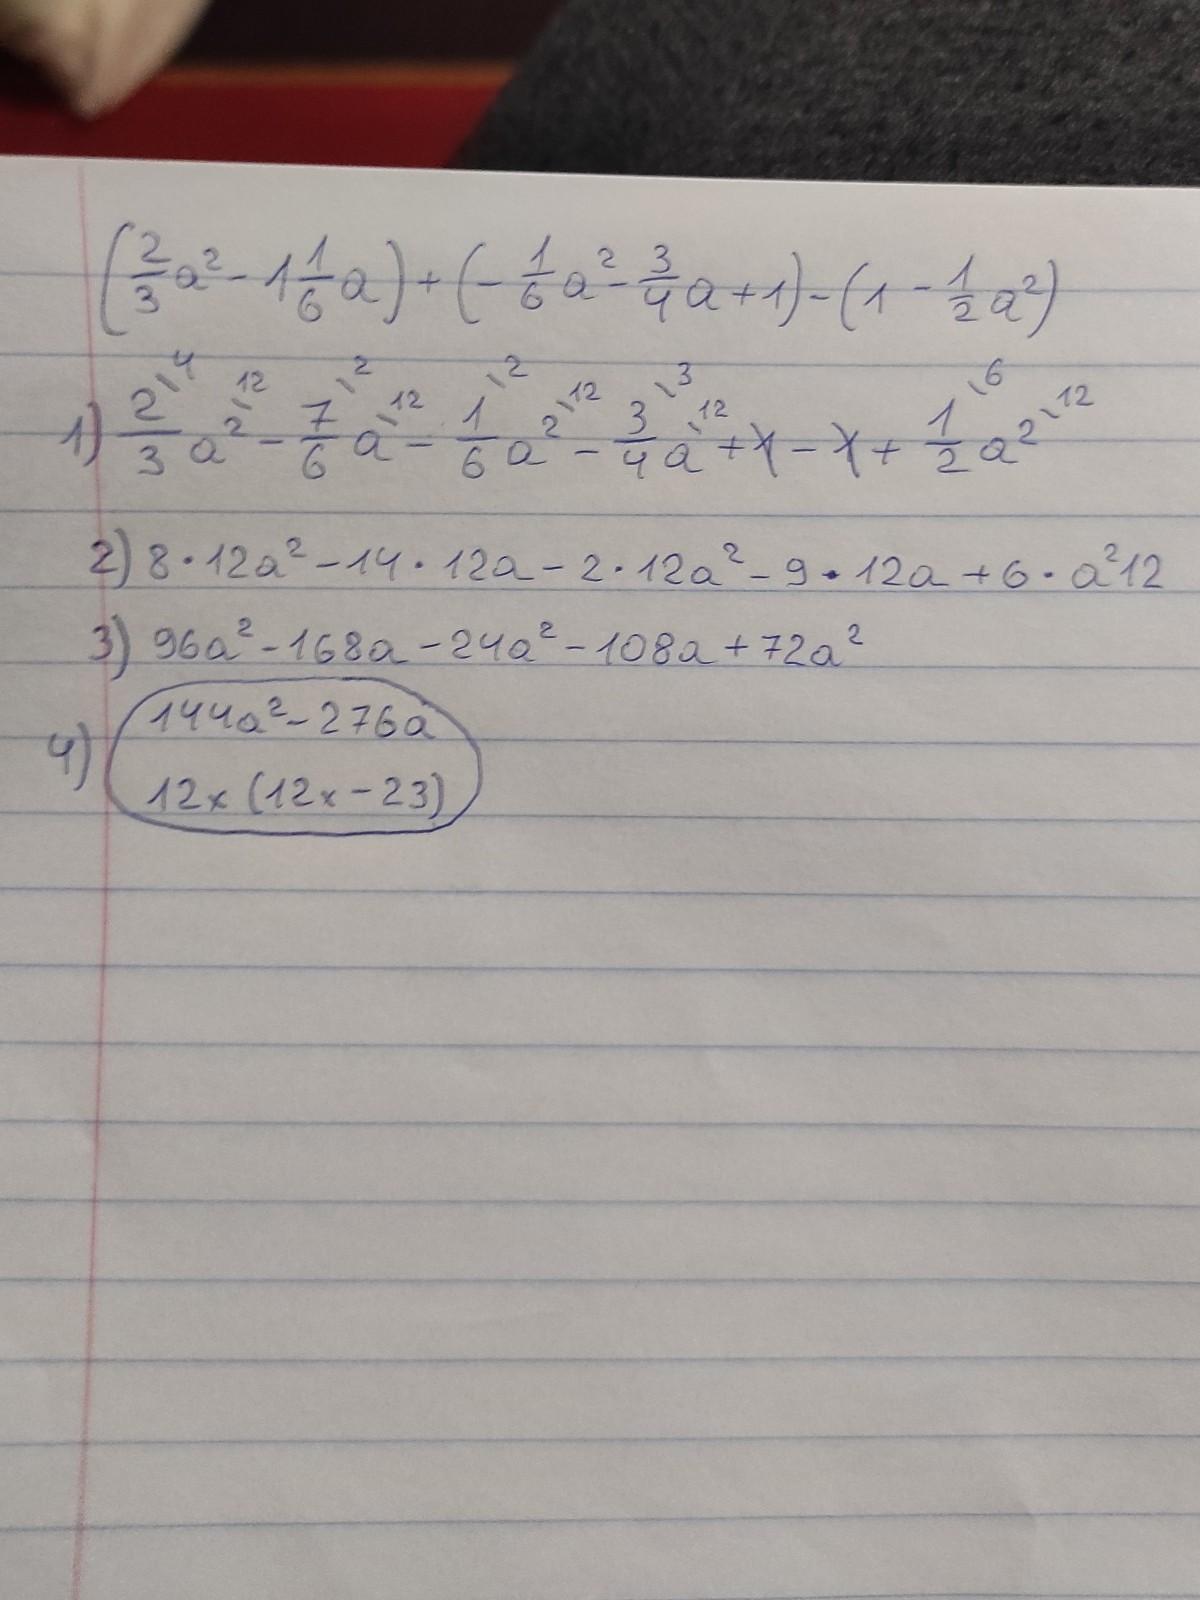 (2/3 a² - 1 1/6 a) + (- 1/6 a² - 3/4 a + 1) - (1 - 1/2 a²)
1) 2/3\4 a²\12 - 7/6\2 a\12 - 1/6\2 a²\12 - 3/4\3 a\12 + 1 - 1 + 1/2\6 a²\12
2) 8 · 12a² - 14 · 12a - 2 · 12a² - 9 · 12a + 6 · a²12
3) 96a² - 168a - 24a² - 108a + 72a²
4) 144a² - 276a
12x (12x - 23)